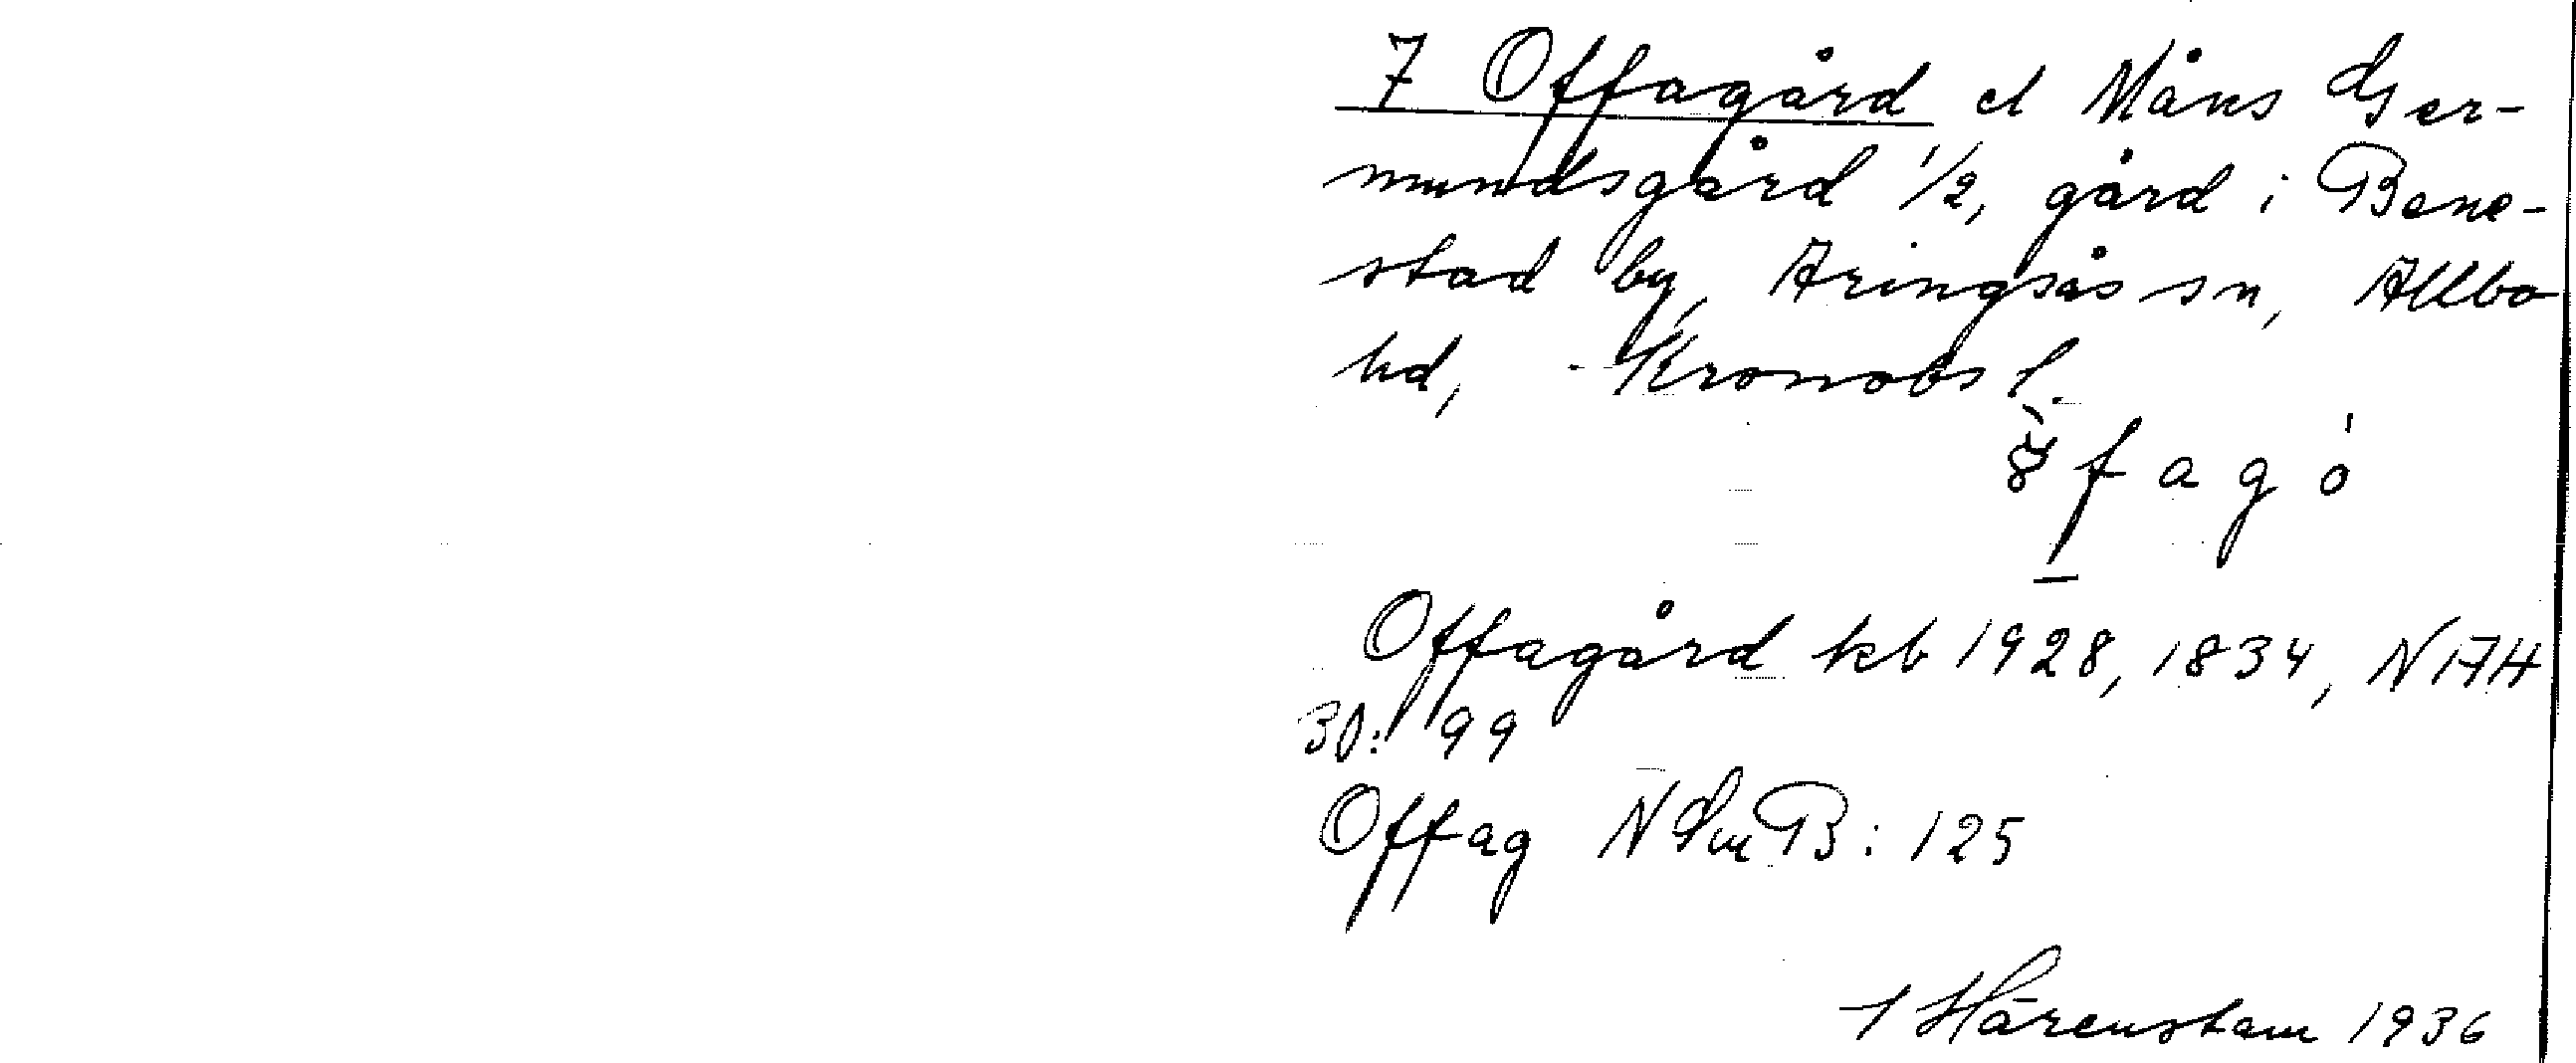 7 Offagård el Måns Ger-
mundsgård 1/2, gård i Bene-
stad by, Aringsås sn, Allbo
hd, Kronobs l.
f a g
Offagård kb 1928, 1834, N17H
30: 99
Offag NSmB: 125
Härenstam 1936